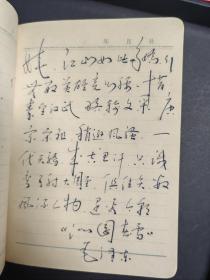 年 月 日
娆 江山如此多娇 引
无数英雄竞折腰 惜
秦皇汉武 略输文采 唐
宗宋祖 稍逊风骚 一
代天骄 成吉思汗 只识
弯弓射大雕 俱往矣 数
风流人物 还看今朝
"沁园春雪"
毛泽东